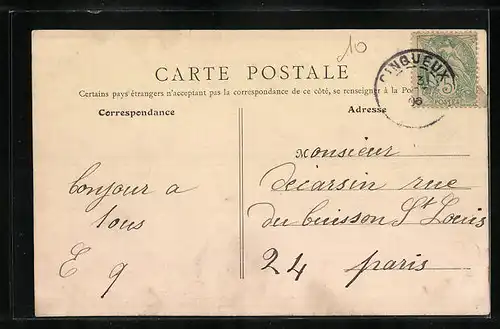 10
CARTE POSTALE
Certains pays étrangers n'acceptant pas la correspondance de ce côté, se renseigner à la Pos
Correspondance
Adresse
CINQUEUX
5
POSTES
Bonjour a
tous
E g
Monsieur
decarsin rue
du buisson St Louis
24 paris